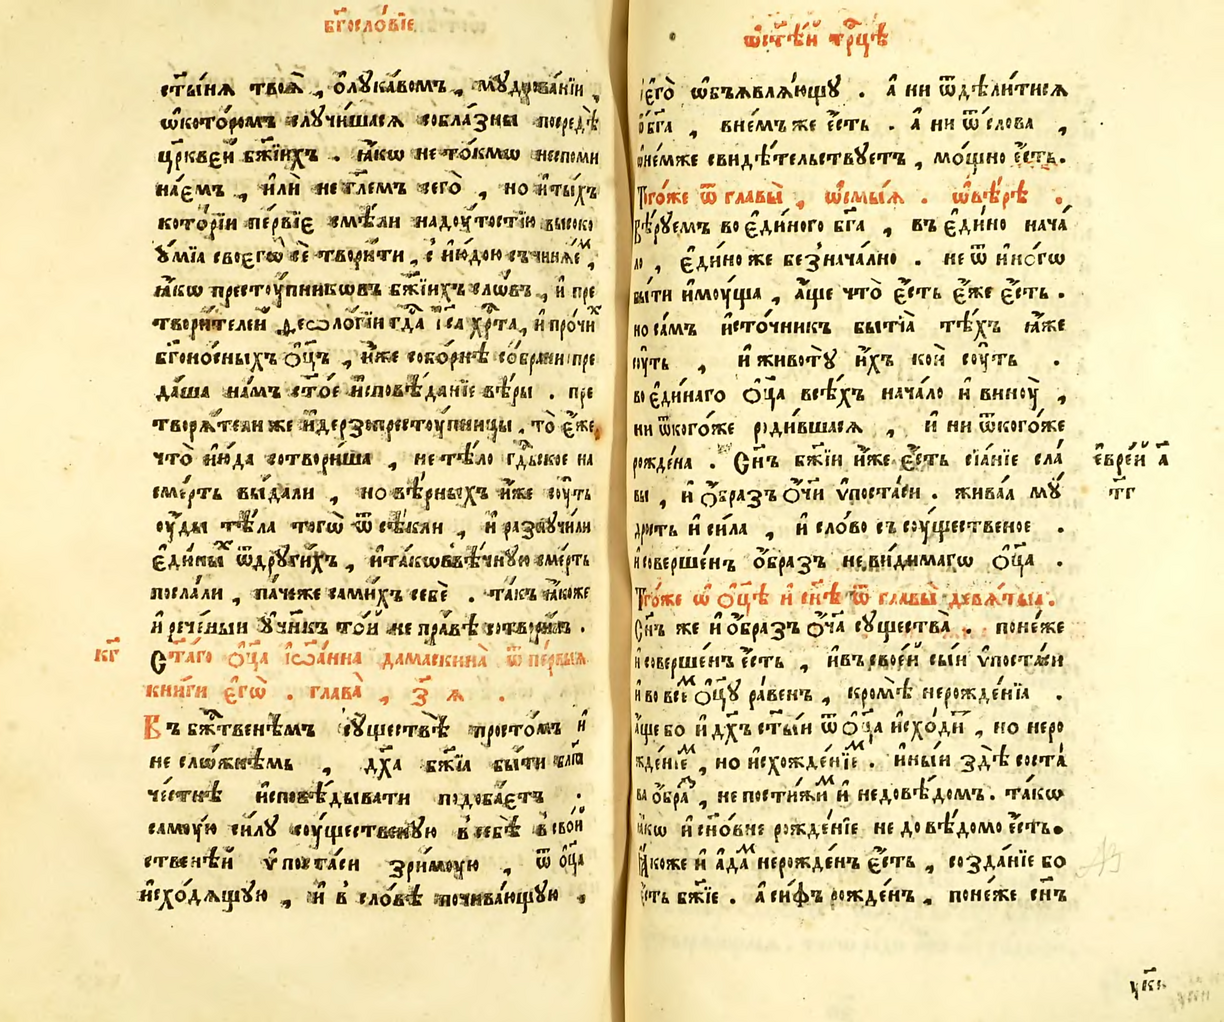 бг҃осло́вїе
ст҃ы́нѧ твоѧ̀, ѻ҆лука́вомъ, мꙋдрова́нїи,
ѡ҆кото́ромъ слꙋчи́шасѧ собла́зны посредѣ̀
цр҃кве́й бж҃їихъ. ꙗ҆́кѡ не то́кмѡ неспоми
на́емъ, и҆лѝ не гл҃емъ сего̀, но и҆ ты́хъ
кото́рїи пе́рвїе смѣ́ли надоу́тостїю высоко
ꙋ҆мїа своегѡ̀ сѐ твори́ти, с̾ и҆ю́дою съчинѧ́еⷨ,
ꙗ҆́кѡ престоу́пникѡвъ бж҃їихъ сло́въ, и҆ пре
твори́телей деѡло́гїи гд҃а і҆с҃а хрⷭ҇та̀, и҆ про́чиⷯ
бг҃оно́сныхъ ѻ҆ц҃ъ, и҆̀же собо́рнѣ со́брани пре
да́ша на́мъ ст҃ое и҆сповѣ́данїе вѣ́ры. пре
творѧ́тели же и҆ дерзопрестоу́пницы. то̀ є҆́же
что̀ и҆ю́да сотвори́ша, не тѣ́ло гд҇ьское на
сме́рть вы́дали, но вѣ́рныхъ и҆̀же соу́ть
оу҆́ды тѣ́ла тогѡ̀ ѿсѣ́кли, и҆ разлꙋчи́ли
є҆ди́ныⷯ ѿдрꙋги́хъ, и҆ та́кѡ вѣ́чнꙋю сме́рть
посла́ли, па́че же сами́хъ себѐ. та́къ ꙗ҆́коже
и҆ рече́ныи ꙋ҆чн҃къ то́й не пра́вѣ сотвори́лъ.
кг҃
Ст҃а́го ѻ҆ц҃а і҆ѡа́нна дамаскина̀ ѿ пе́рвыѧ
кни́ги є҆гѡ̀. глава̀, з҃ ѧ.
Въ бжⷭ҇твенѣмъ соу́ществѣ просто́мъ и҆
не сло́жнѣмь, дх҃а бж҃їа бы́ти бл҃го
че́стнѣ и҆сповѣ́дывати подоба́етъ.
самоу́ю си́лꙋ соу́щественꙋю в̾ себѣ̀ в̾ свои
ственѣ́й ѵ҆поста́си зри́моую, ѿ ѻ҆ц҃а
и҆схо́дѧщꙋю, и҆ в̾ сло́вѣ почива́ющꙋю,
ѡ҆ ст҃ѣ́й трⷪ҇цѣ
є҆го̀ ѡ҆б̾ѧвлѧ́ющꙋ. а҆ ни ѿдѣли́тисѧ
ѻ҆ бг҃а, в не́мъ же є҆́сть. а҆ ни ѿ сло́ва,
ѡ҆ не́мже свидѣ́тельствꙋетъ, мо́щно є҆́сть.
Того́же ѿ главы̀, ѡ҆смы́ѧ. ѡ҆ вѣ́рѣ.
Вѣ́рꙋемъ во є҆ди́ного бг҃а, въ є҆ди́но нача́
ло, є҆ди́но же безнача́лно. не ѿ и҆но́гѡ
бы́ти и҆моу́ща, а҆́ще что̀ є҆́сть є҆́же є҆́сть.
но са́мъ и҆сто́чникъ бытїа̀ тѣ́хъ ꙗ҆́же
соу́ть, и҆ животꙋ̀ и҆́хъ ко́й соу́ть.
во є҆ди́наго ѻ҆ц҃а всѣ́хъ нача́ло и҆ виноу̀,
ни ѿкого́же роди́вшасѧ, и҆ ни ѿкого́же
рожде́на. Сн҃ъ бж҃їи и҆́же є҆́сть сїѧ́нїе сла́
вы, и҆ ѻ҆́бразъ ѻ҆́ч҃и ѵ҆поста́си. жива́ѧ мꙋ́
дрость и҆ си́ла, и҆ сло́во съ соу́щественое.
и҆ соверше́нъ ѻ҆́бразъ неви́димагѡ ѻ҆ц҃а.
є҆вре́й а҃
т҃г
Того́же ѡ҆ ѻ҆ц҃ѣ и҆ сн҃ѣ ѿ главы̀ девѧ́тыѧ.
Сн҃ъ же и҆ ѻ҆́бразъ ѻ҆ч҃а существа̀. поне́же
и҆ соверше́нъ є҆́сть, и҆ въ свое́й сы́и ѵ҆поста́си
и҆ во все́ⷨ ѻ҆ц҃ꙋ ра́венъ, кро́мѣ нерожде́нїа.
а҆́ще бо и҆ дх҃ъ ст҃ы́и ѿ ѻ҆ц҃а и҆схо́дит, но неро
жде́нїеⷨ, но и҆схожде́нїеⷨ. и҆ны́и здѣ̀ соста́
ва ѻ҆́браⷥ, непостижи́мⷨ и҆ недовѣ́домъ. та́кѡ
ꙗ҆́кѡ и҆ сн҃о́вне рожде́нїе недовѣ́домо є҆́сть.
Ꙗ҆́коже и҆ а҆да́ⷨ нерожде́нъ є҆́сть, созда́нїе бо
є҆́сть бж҃їе. а҆ си́ѳъ рожде́нъ, поне́же сн҃ъ